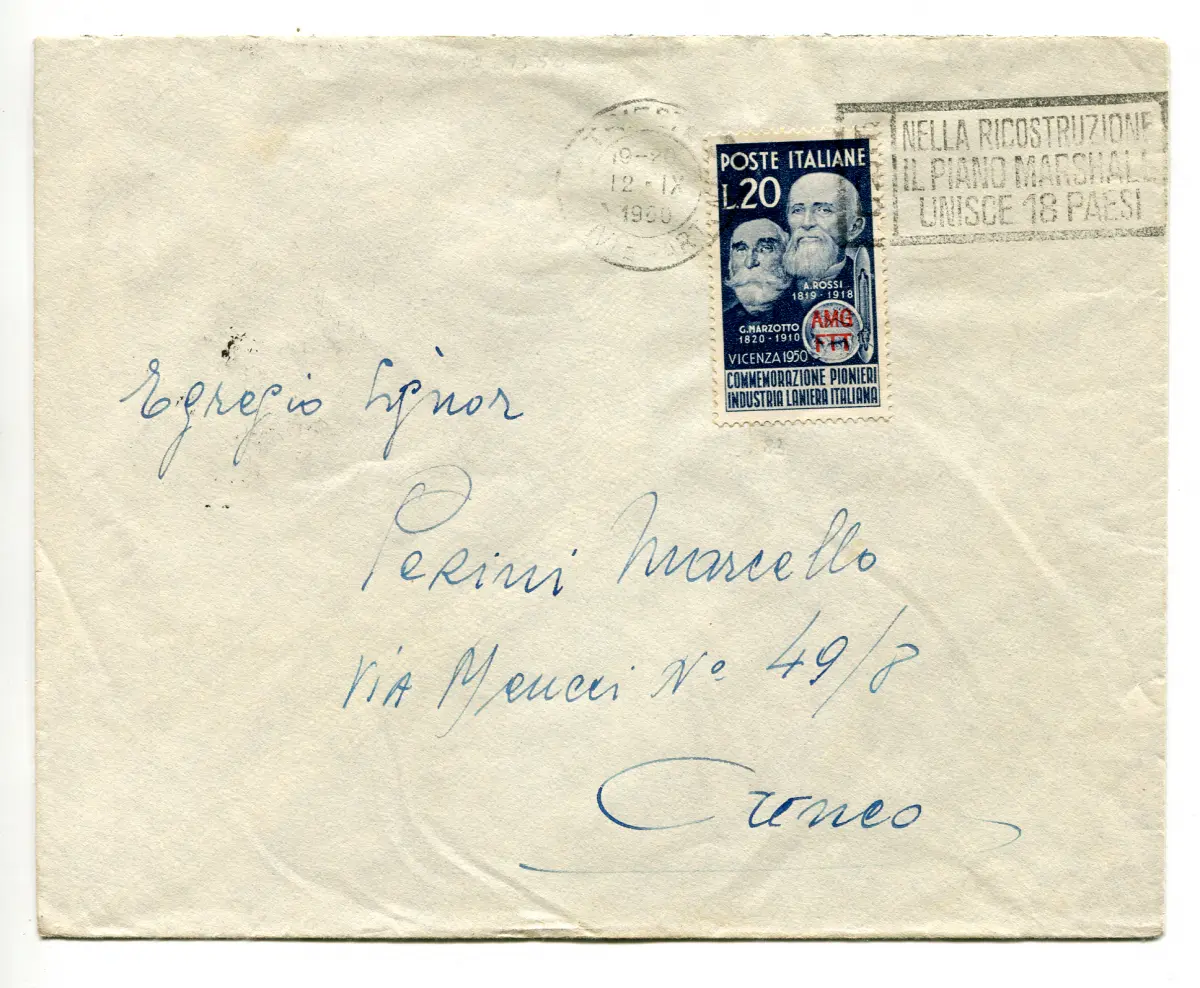 19-20
12-IX
1950
NELLA RICOSTRUZIONE
IL PIANO MARSHALL
UNISCE 18 PAESI
POSTE ITALIANE
L.20
A.ROSSI
1819-1918
G.MARZOTTO
1820-1910
AMG
FTT
VICENZA 1950
COMMEMORAZIONE PIONIERI
INDUSTRIA LANIERA ITALIANA
Egregio Signor
Perini Marcello
Via Meucci N° 49/8
Cuneo